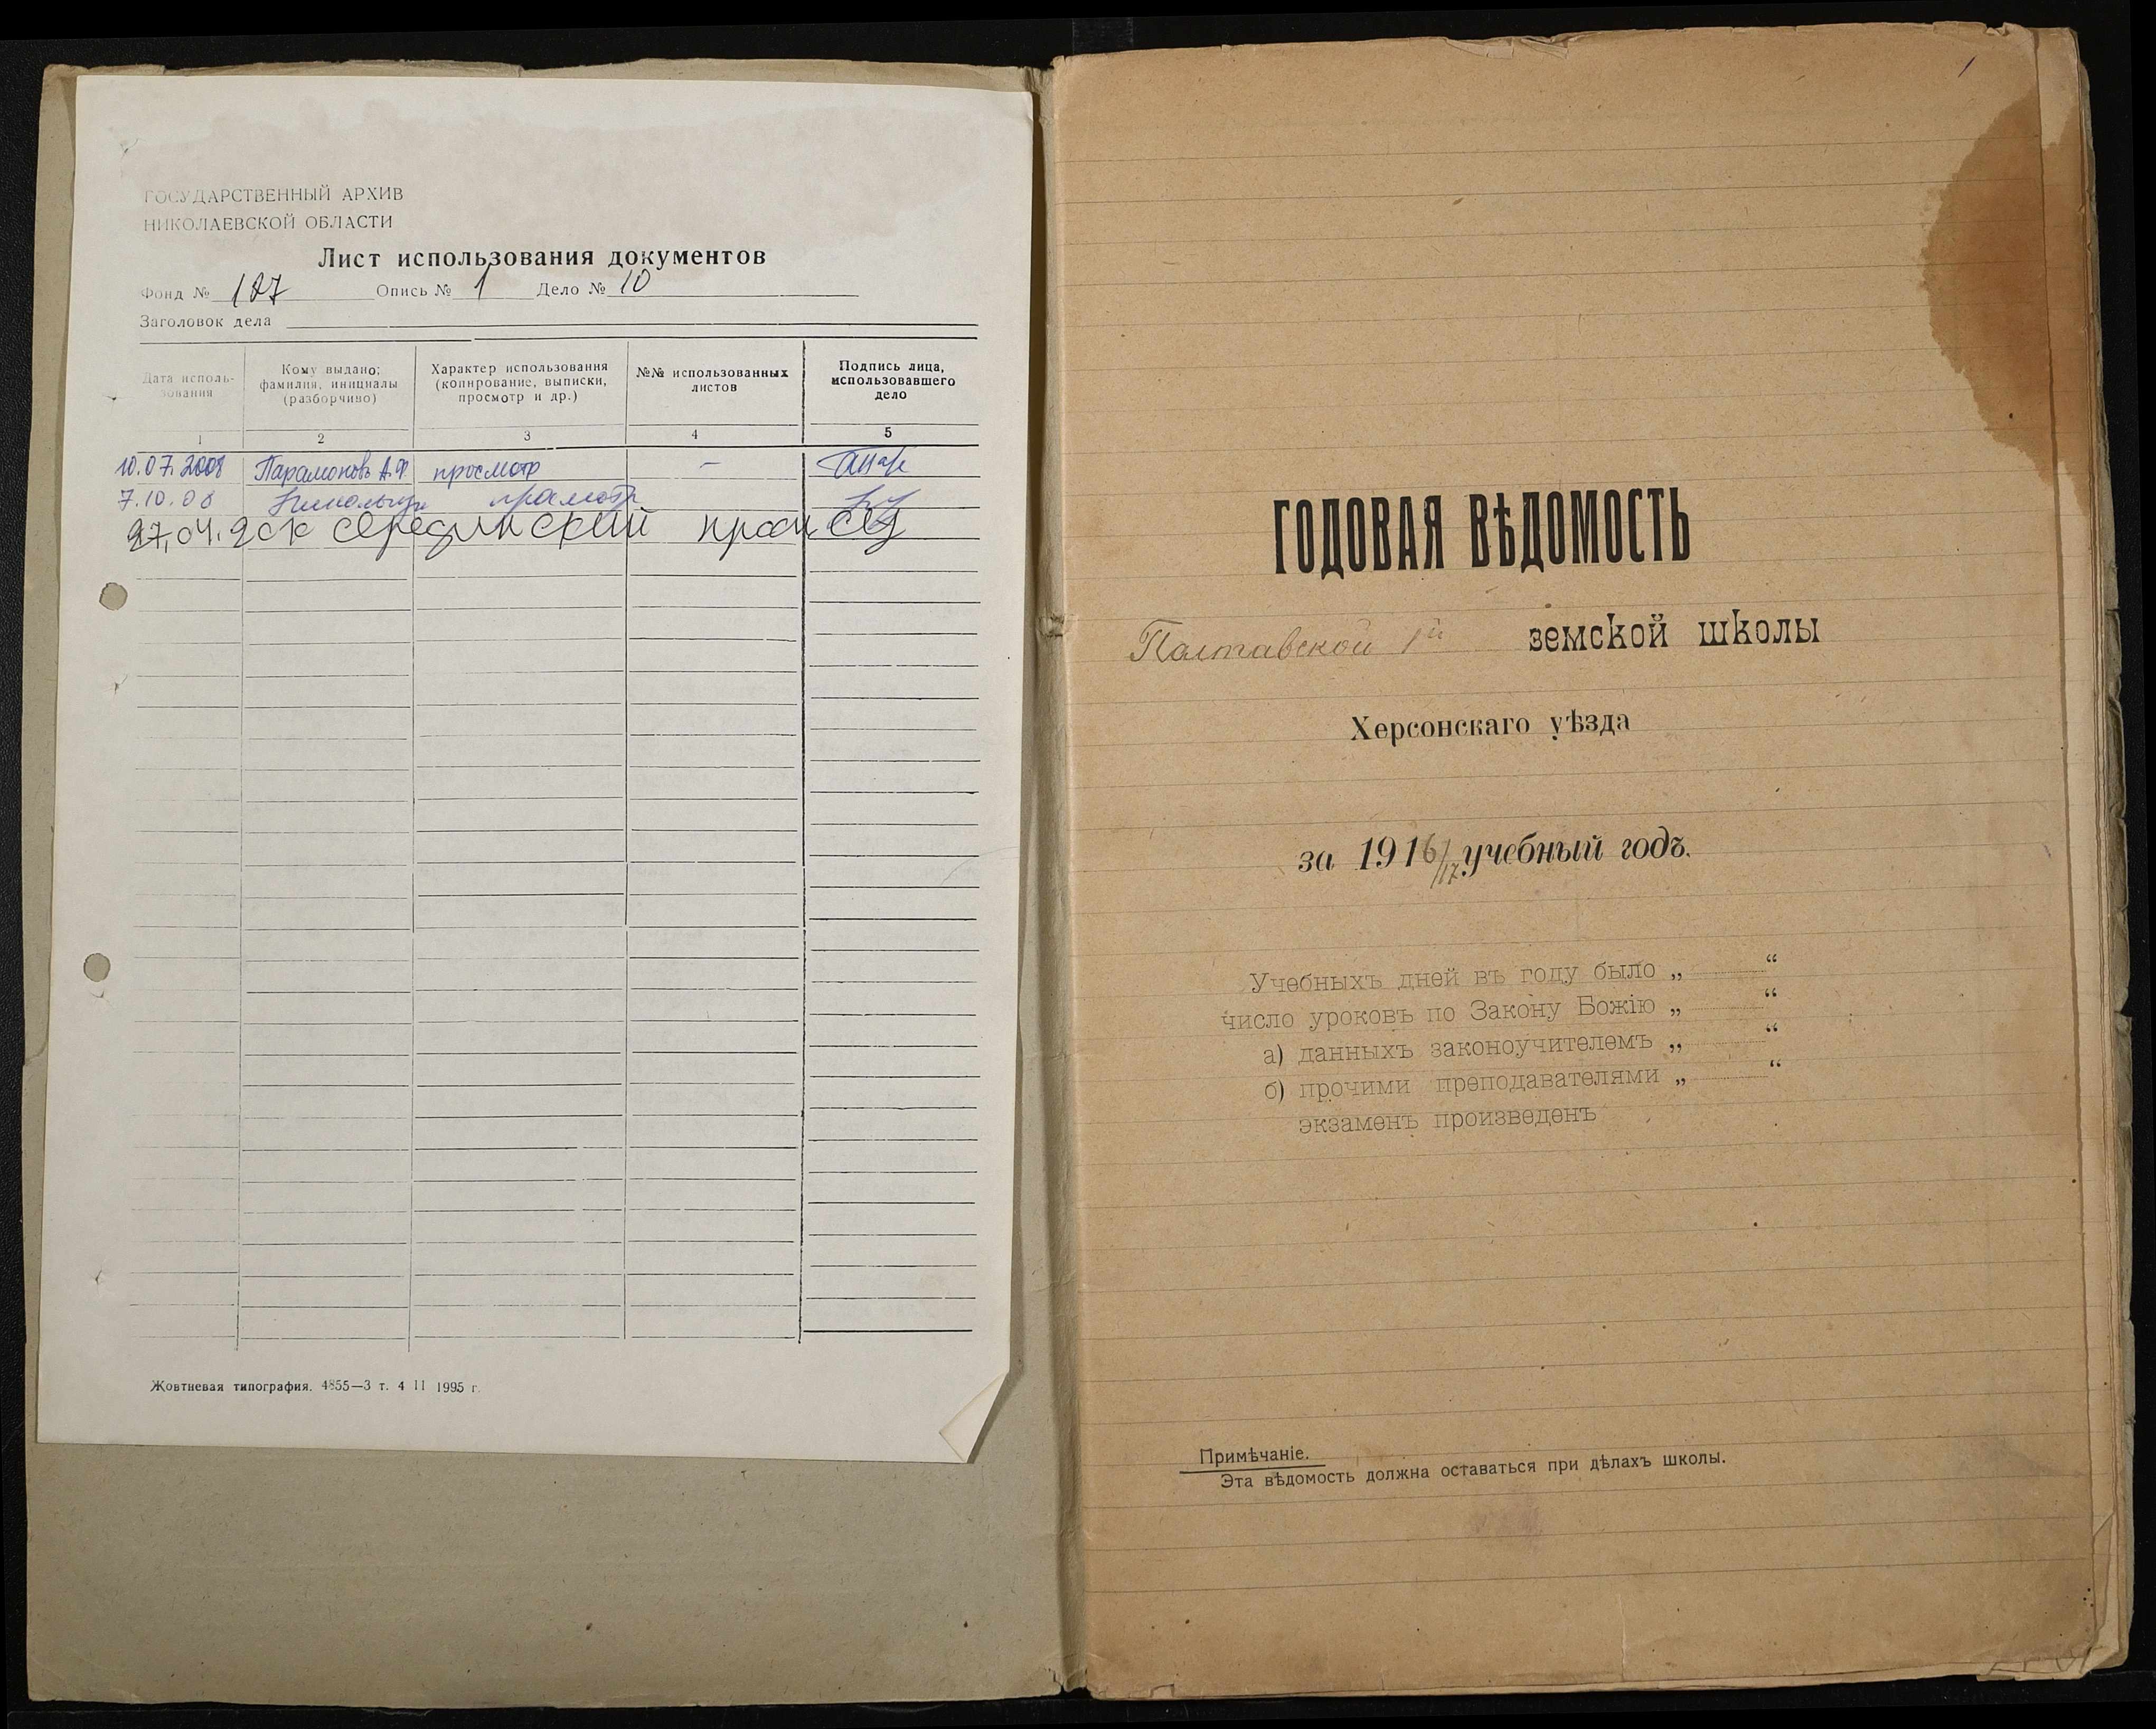 ГОСУДАРСТВЕННЫЙ АРХИВ
НИКОЛАЕВСКОЙ ОБЛАСТИ
Лист использования документов
Фонд № 187 Опись № 1 Дело № 10
Заголовок дела
Дата исполь-
зования
Кому выдано;
фамилия, инициалы
(разборчиво)
Характер использования
(копирование, выписки,
просмотр и др.)
№№ использованных
листов
Подпись лица,
использовавшего
дело
1 2 3 4 5
10.07.2008 Парамоновъ А.Ф. просмотр –
7.10.08 просмотр
27.04. Серединский
Жовтневая типография. 4855—3 т. 4 II 1995 г.
1
ГОДОВАЯ ВѢДОМОСТЬ
Полтавской 1й земской школы
Херсонскаго уѣзда
за 1916/17 учебный годъ.
Учебныхъ дней въ году было „ “
число уроковъ по Закону Божію „ “
а) данныхъ законоучителемъ „ “
б) прочими преподавателями „ “
экзаменъ произведенъ
Примѣчаніе.
Эта вѣдомость должна оставаться при дѣлахъ школы.